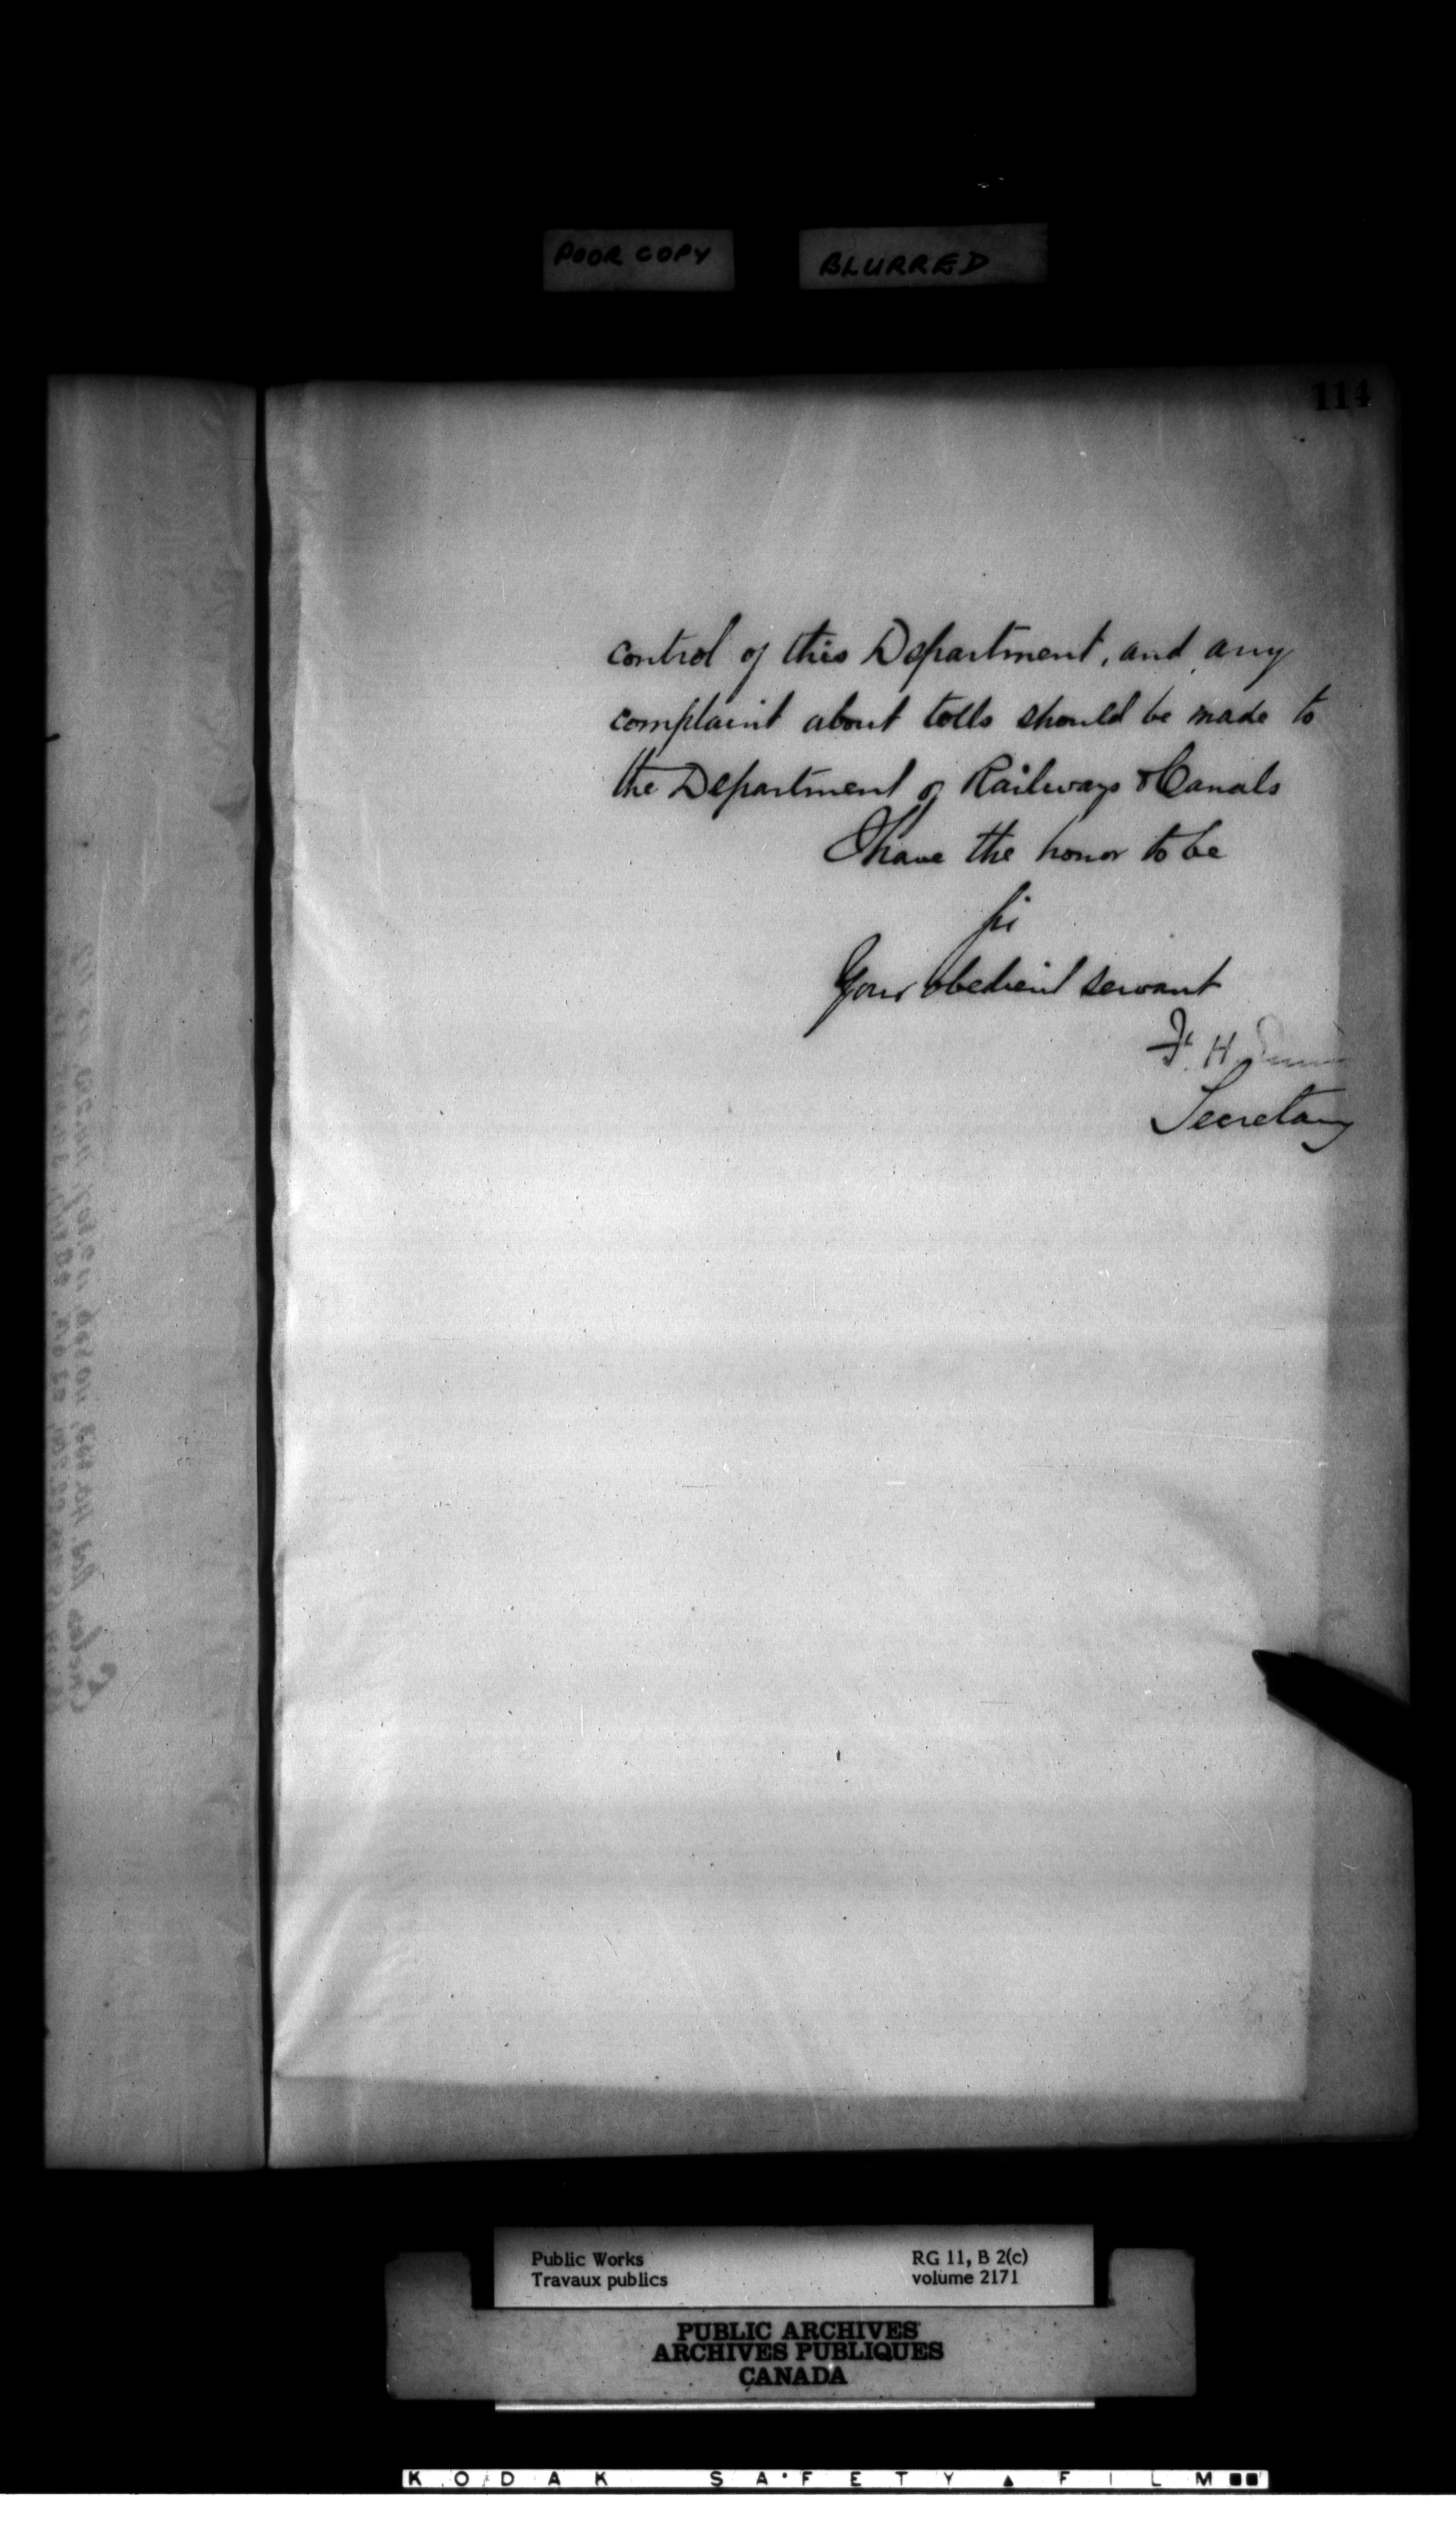 POOR COPY BLURRED
114
control of this Department, and any
complaint about tolls should be made to
the Department of Railways & Canals
I have the honor to be
Sir
Your obedient servant
F. H.
Secretary
Public Works RG 11, B 2(c)
Travaux publics volume 2171
PUBLIC ARCHIVES
ARCHIVES PUBLIQUES
CANADA
KODAK SAFETY FILM